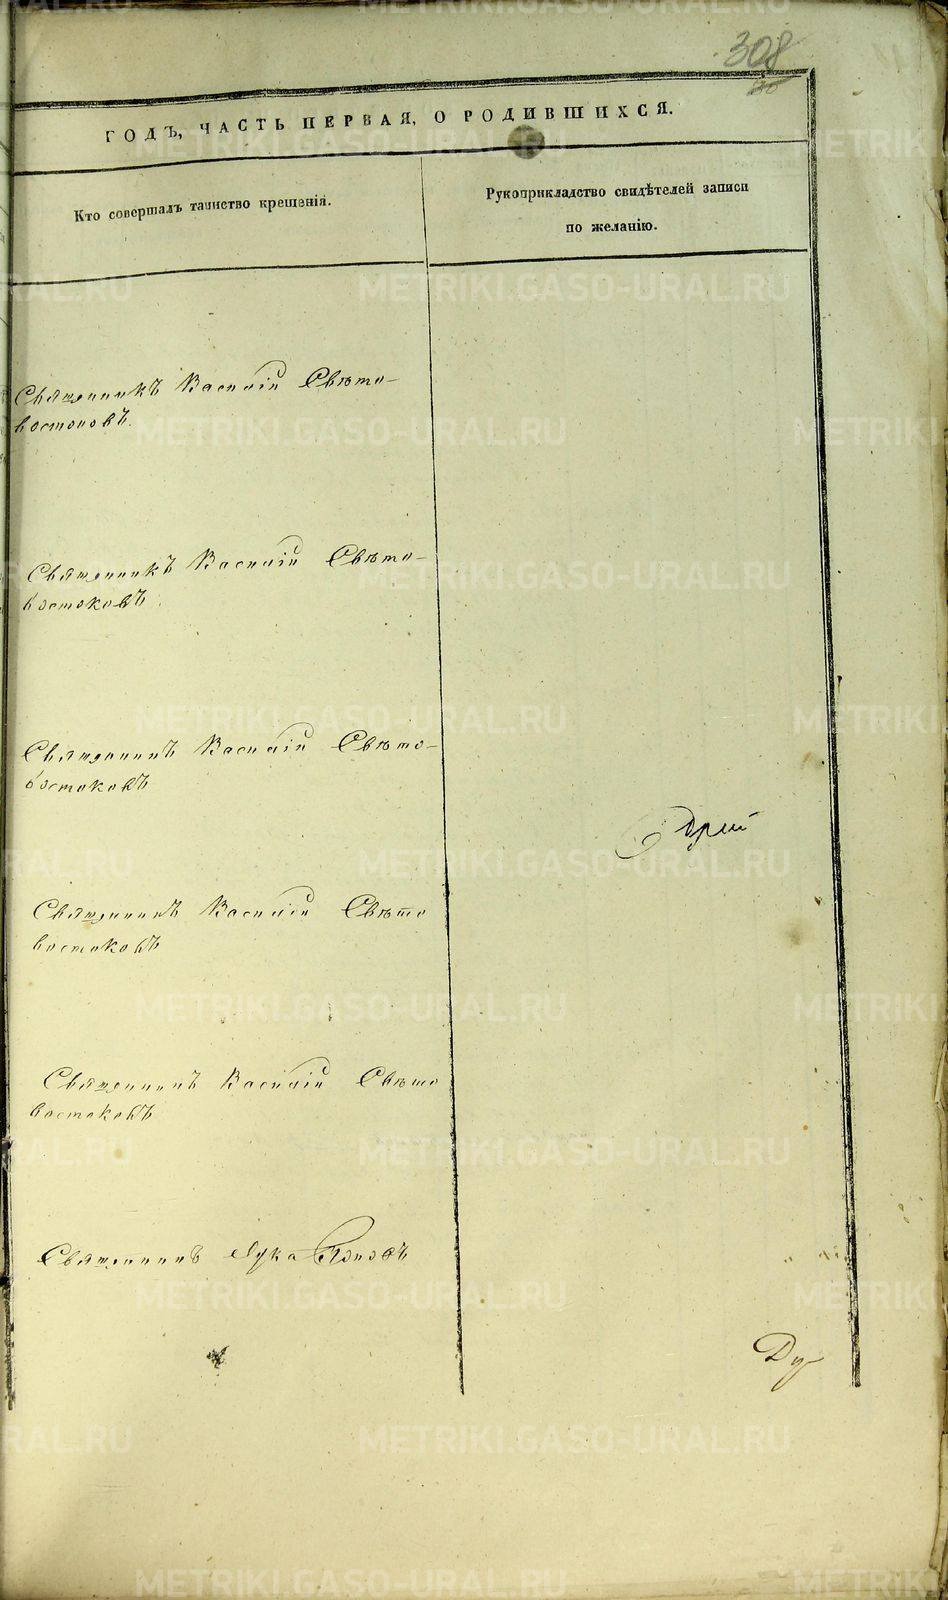 308
ГОДЪ, ЧАСТЬ ПЕРВАЯ, О РОДИВШИХСЯ.
Кто совершалъ таинство крещенія.
Рукоприкладство свидѣтелей записи
по желанію.
Священникъ Василій Свѣто-
востоковъ.
Священникъ Василій Свѣто-
востоковъ.
Священникъ Василій Свѣто-
востоковъ
Священникъ Василій Свѣто
востоковъ
Священникъ Василій Свѣто
востоковъ
Священникъ Лука Поповъ
Ду
METRIKI.GASO-URAL.RU